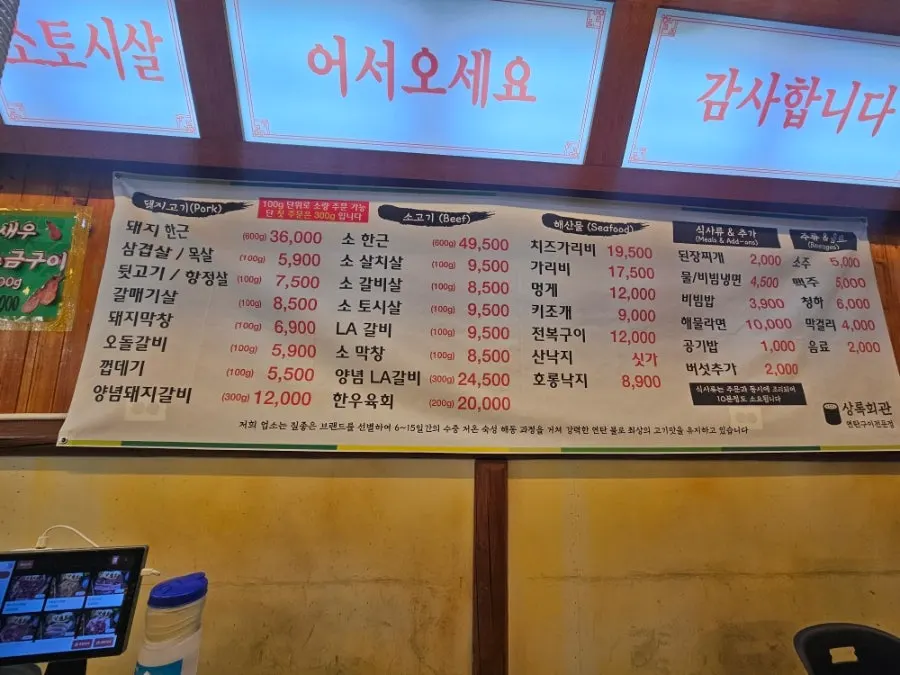 소토시살
어서오세요
감사합니다
새우
금구이
돼지고기(Pork)
100g 단위로 소량 주문 가능
단 첫 주문은 300g 입니다
돼지 한근 (600g) 36,000
삼겹살 / 목살 (100g) 5,900
뒷고기 / 항정살 (100g) 7,500
갈매기살 (100g) 8,500
돼지막창 (100g) 6,900
오돌갈비 (100g) 5,900
껍데기 (100g) 5,500
양념돼지갈비 (300g) 12,000
소고기 (Beef)
소 한근 (600g) 49,500
소 살치살 (100g) 9,500
소 갈비살 (100g) 8,500
소 토시살 (100g) 9,500
LA 갈비 (100g) 9,500
소 막창 (100g) 8,500
양념 LA갈비 (300g) 24,500
한우육회 (200g) 20,000
해산물 (Seafood)
치즈가리비 19,500
가리비 17,500
멍게 12,000
키조개 9,000
전복구이 12,000
산낙지 싯가
호롱낙지 8,900
식사류 & 추가
(Meals & Add-ons)
된장찌개 2,000
물/비빔냉면 4,500
비빔밥 3,900
해물라면 10,000
공기밥 1,000
버섯추가 2,000
식사류는 주문과 동시에 조리되어
10분정도 소요됩니다
소주 5,000
맥주 5,000
청하 6,000
막걸리 4,000
음료 2,000
상록회관
연탄구이전문점
저희 업소는 질좋은 브랜드를 선별하여 6~15일간의 수중 저온 숙성 해동 과정을 거쳐 강력한 연탄 불로 최상의 고기맛을 유지하고 있습니다